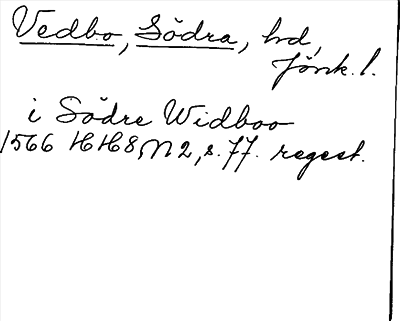 Vedbo, Södra, hd,
Jönk. l.
i Södre Widboo
1566 HH8, N2, s. 77. regest.